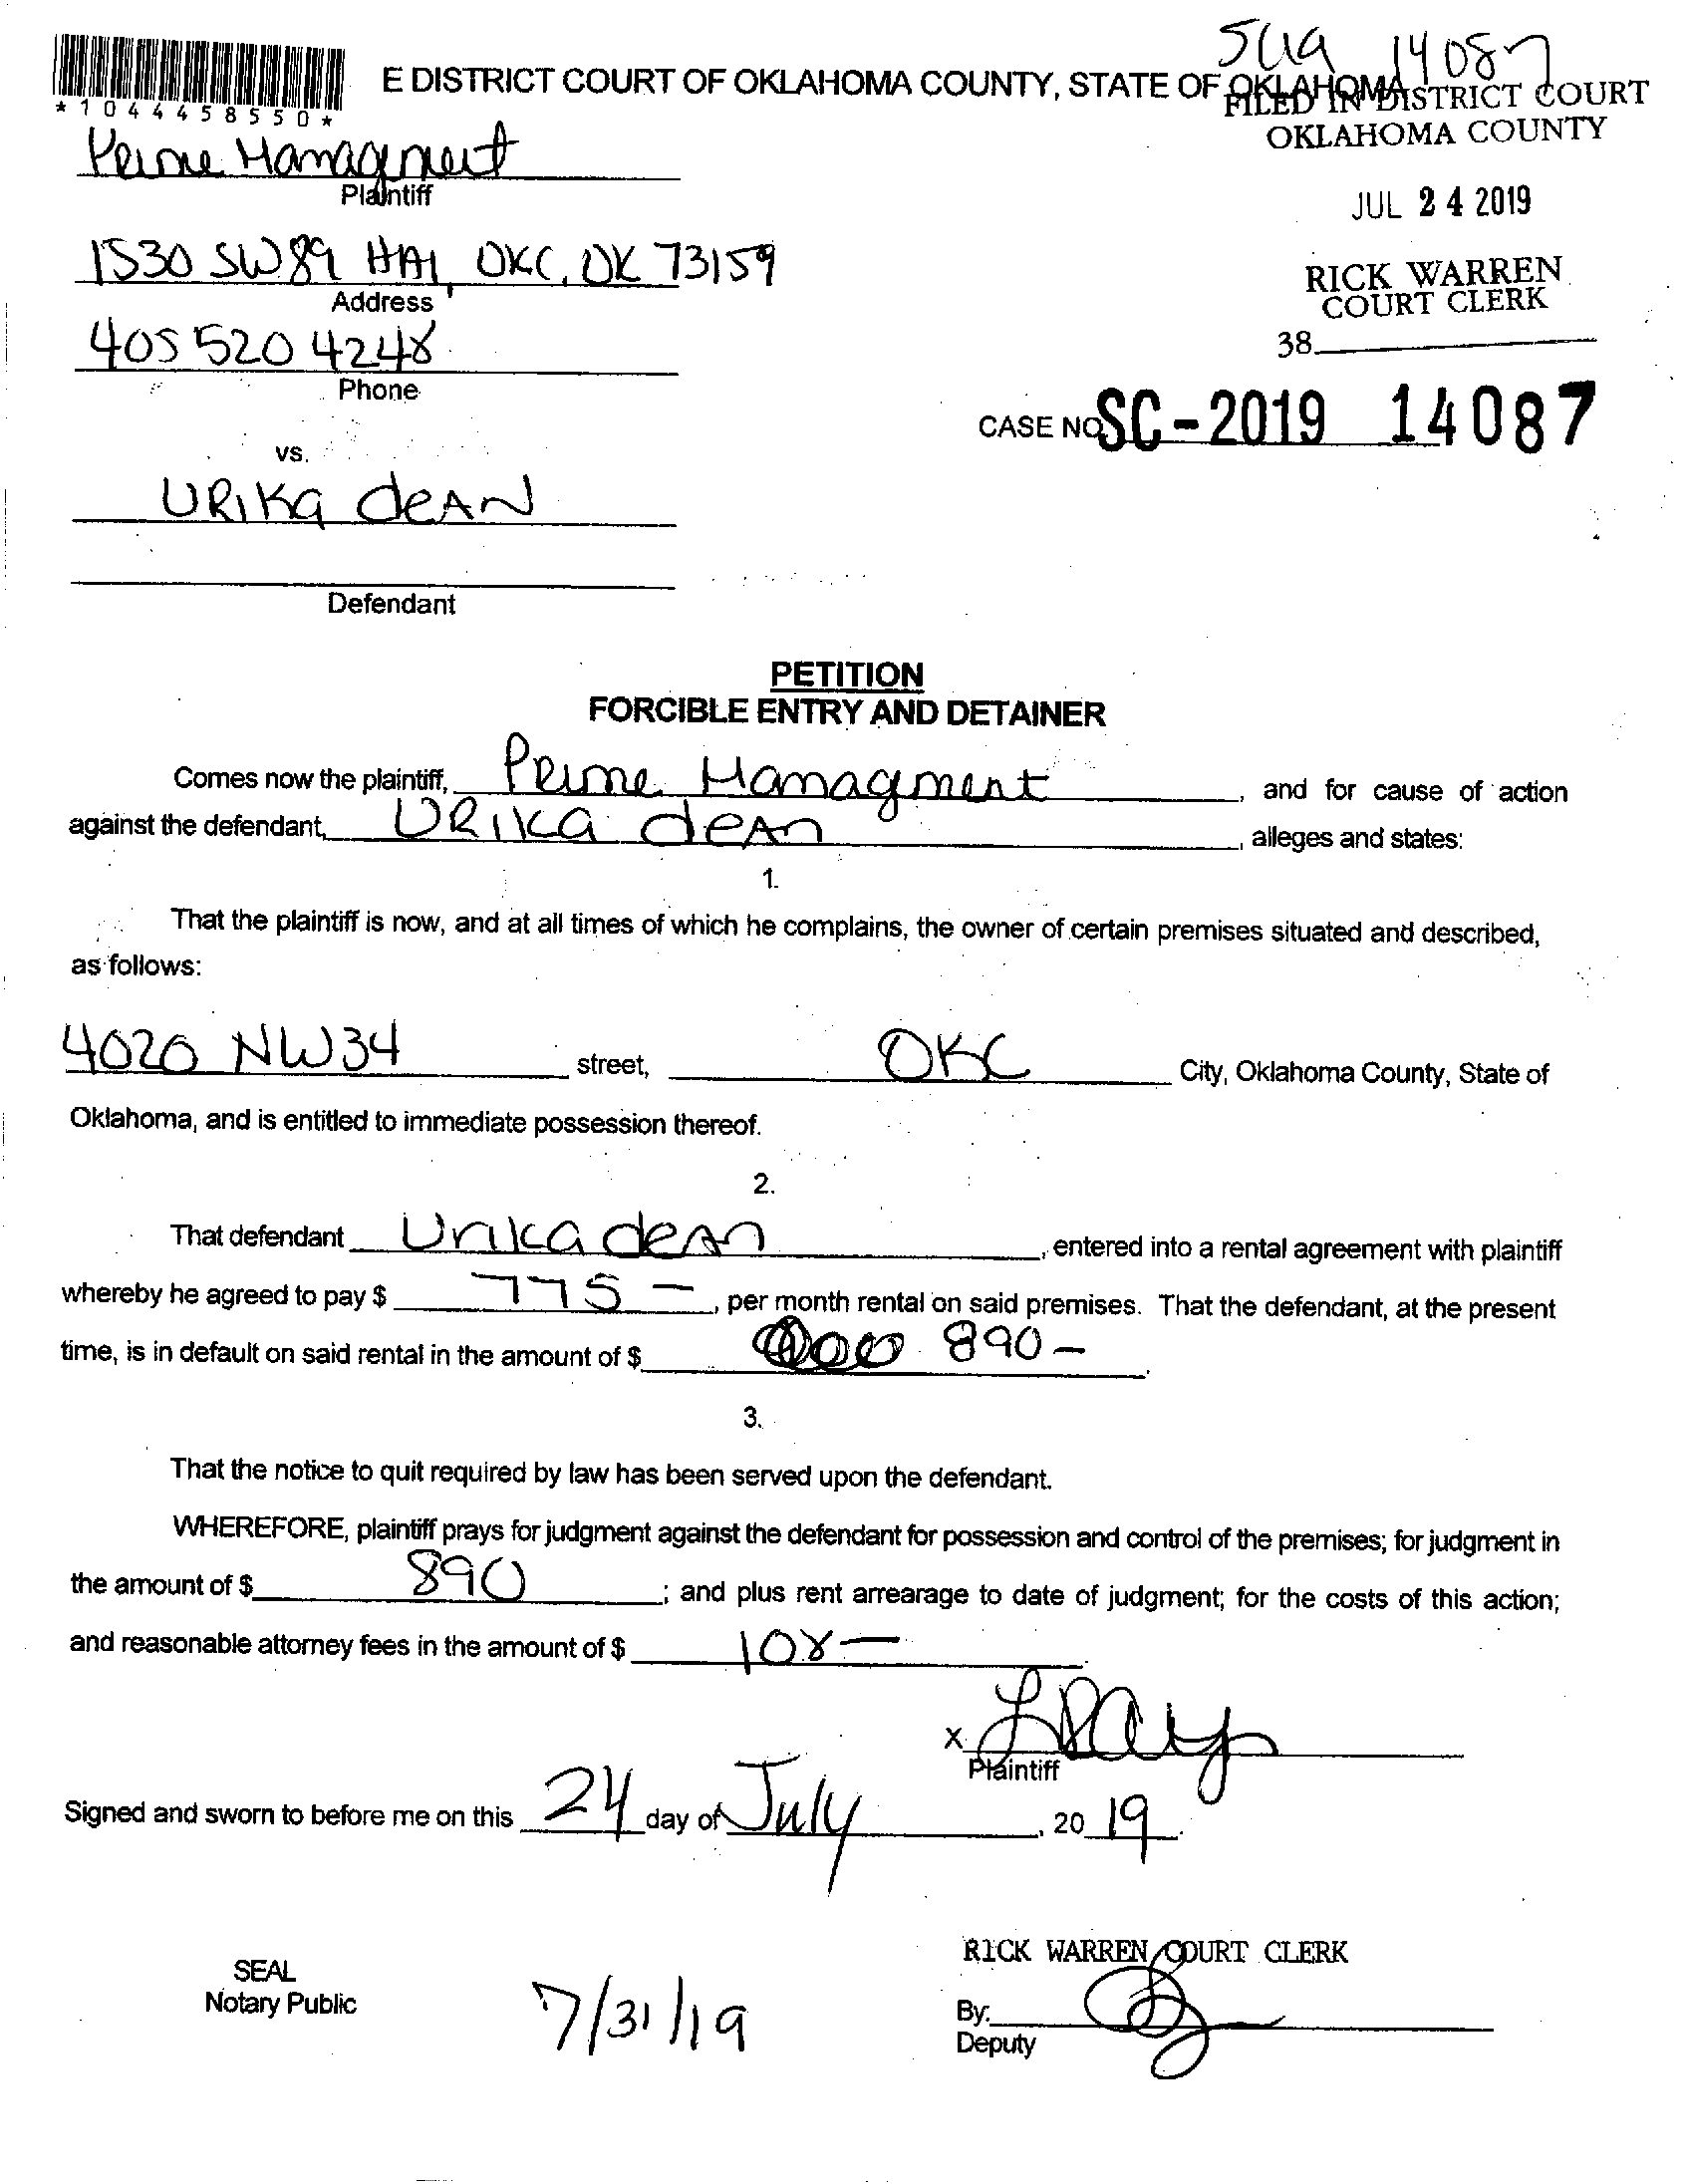 SC19 14087
E DISTRICT COURT OF OKLAHOMA COUNTY, STATE OF OKLAHOMA
FILED IN DISTRICT COURT
OKLAHOMA COUNTY
*1044458550*
Prime Managment
Plaintiff
JUL 24 2019
1530 SW 89 #A1, OKC, OK 73159
Address
RICK WARREN
COURT CLERK
405 520 4248
Phone
38
CASE NO SC-2019 14087
vs.
URIKa deAN
Defendant
PETITION
FORCIBLE ENTRY AND DETAINER
Comes now the plaintiff, Prime Managment, and for cause of action
against the defendant, URIKa deAn, alleges and states:
1.
That the plaintiff is now, and at all times of which he complains, the owner of certain premises situated and described,
as follows:
4020 NW 34 street, OKC City, Oklahoma County, State of
Oklahoma, and is entitled to immediate possession thereof.
2.
That defendant Urika deAn, entered into a rental agreement with plaintiff
whereby he agreed to pay $ 775 -, per month rental on said premises. That the defendant, at the present
time, is in default on said rental in the amount of $ 890 -.
3.
That the notice to quit required by law has been served upon the defendant.
WHEREFORE, plaintiff prays for judgment against the defendant for possession and control of the premises; for judgment in
the amount of $ 890; and plus rent arrearage to date of judgment; for the costs of this action;
and reasonable attorney fees in the amount of $ 108 -.
X
Plaintiff
Signed and sworn to before me on this 24 day of July, 20 19.
RICK WARREN COURT CLERK
SEAL
Notary Public
7/31/19
By:
Deputy